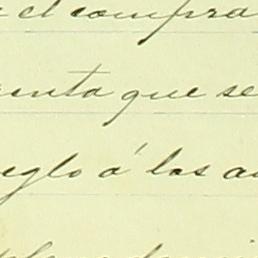 el compra
enta que se
eglo á las